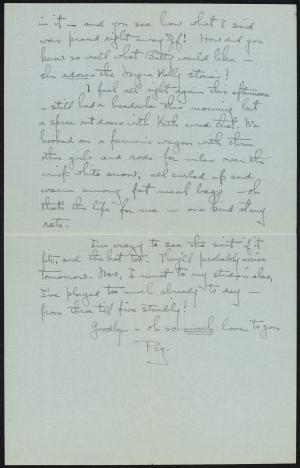 in it — and you see how what I said
was proved right away off! How did you
know so well what Betty would like —
she adores the Joyce Kelly stories!
I feel all right again this afternoon
— still had a headache this morning but
a spree outdoors with Kath cured that. We
hooked on a farmer's wagon with three
other girls and rode for miles over the
crisp white snow, all curled up and
warm among fat meal bags — oh
that's the life for me — one kind any
rate.
I'm crazy to see the suit if it
fits, and the hat too. They'll probably arrive
tomorrow. Now, I must to my studies alas,
I've played too much already to day —
from three till five steadily!
Goodbye — oh so much love to you
Peg.